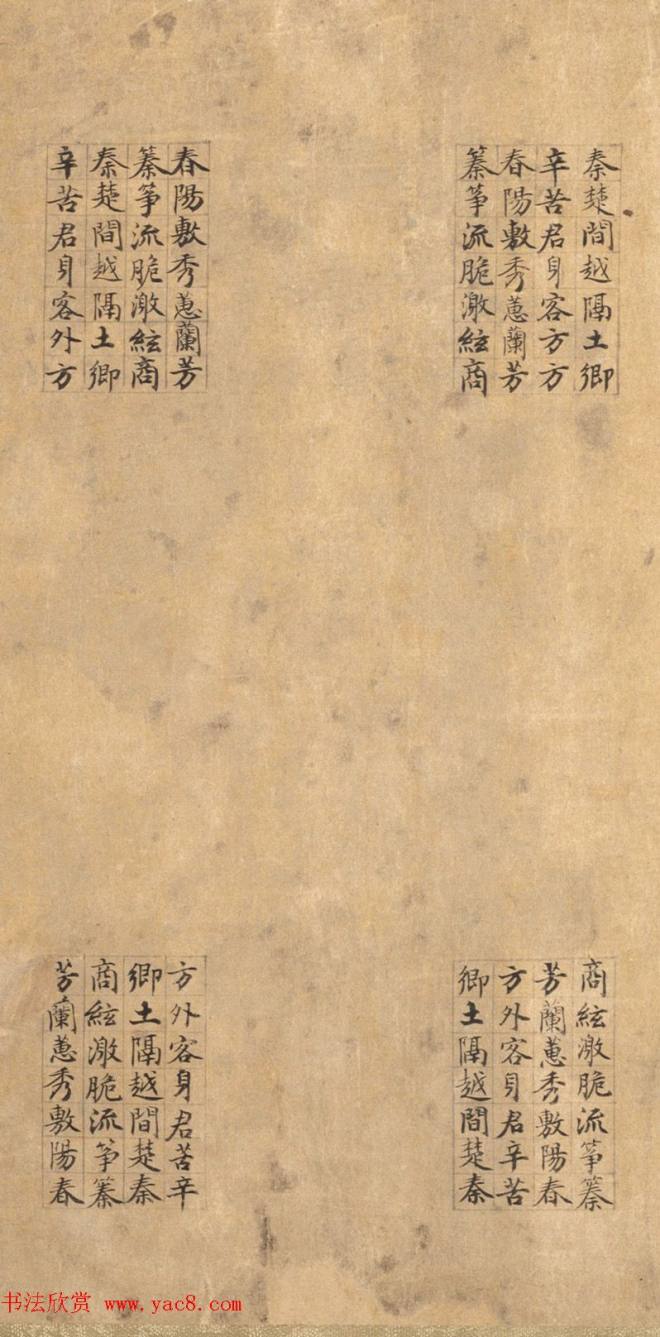 秦楚間越隔土鄉
辛苦君身客方方
春陽敷秀蕙蘭芳
蓁筝流脆激絃商
春陽敷秀蕙蘭芳
蓁筝流脆激絃商
秦楚間越隔土鄉
辛苦君身客外方
商絃激脆流筝蓁
芳蘭蕙秀敷陽春
方外客身君辛苦
鄉土隔越間楚秦
方外客身君苦辛
鄉土隔越間楚秦
商絃激脆流筝蓁
芳蘭蕙秀敷陽春
书法欣赏 www.yac8.com